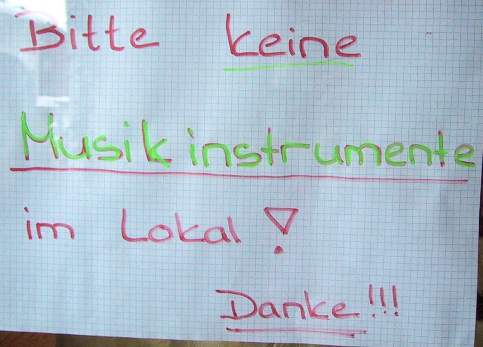 Bitte keine
Musikinstrumente
im Lokal !
Danke!!!